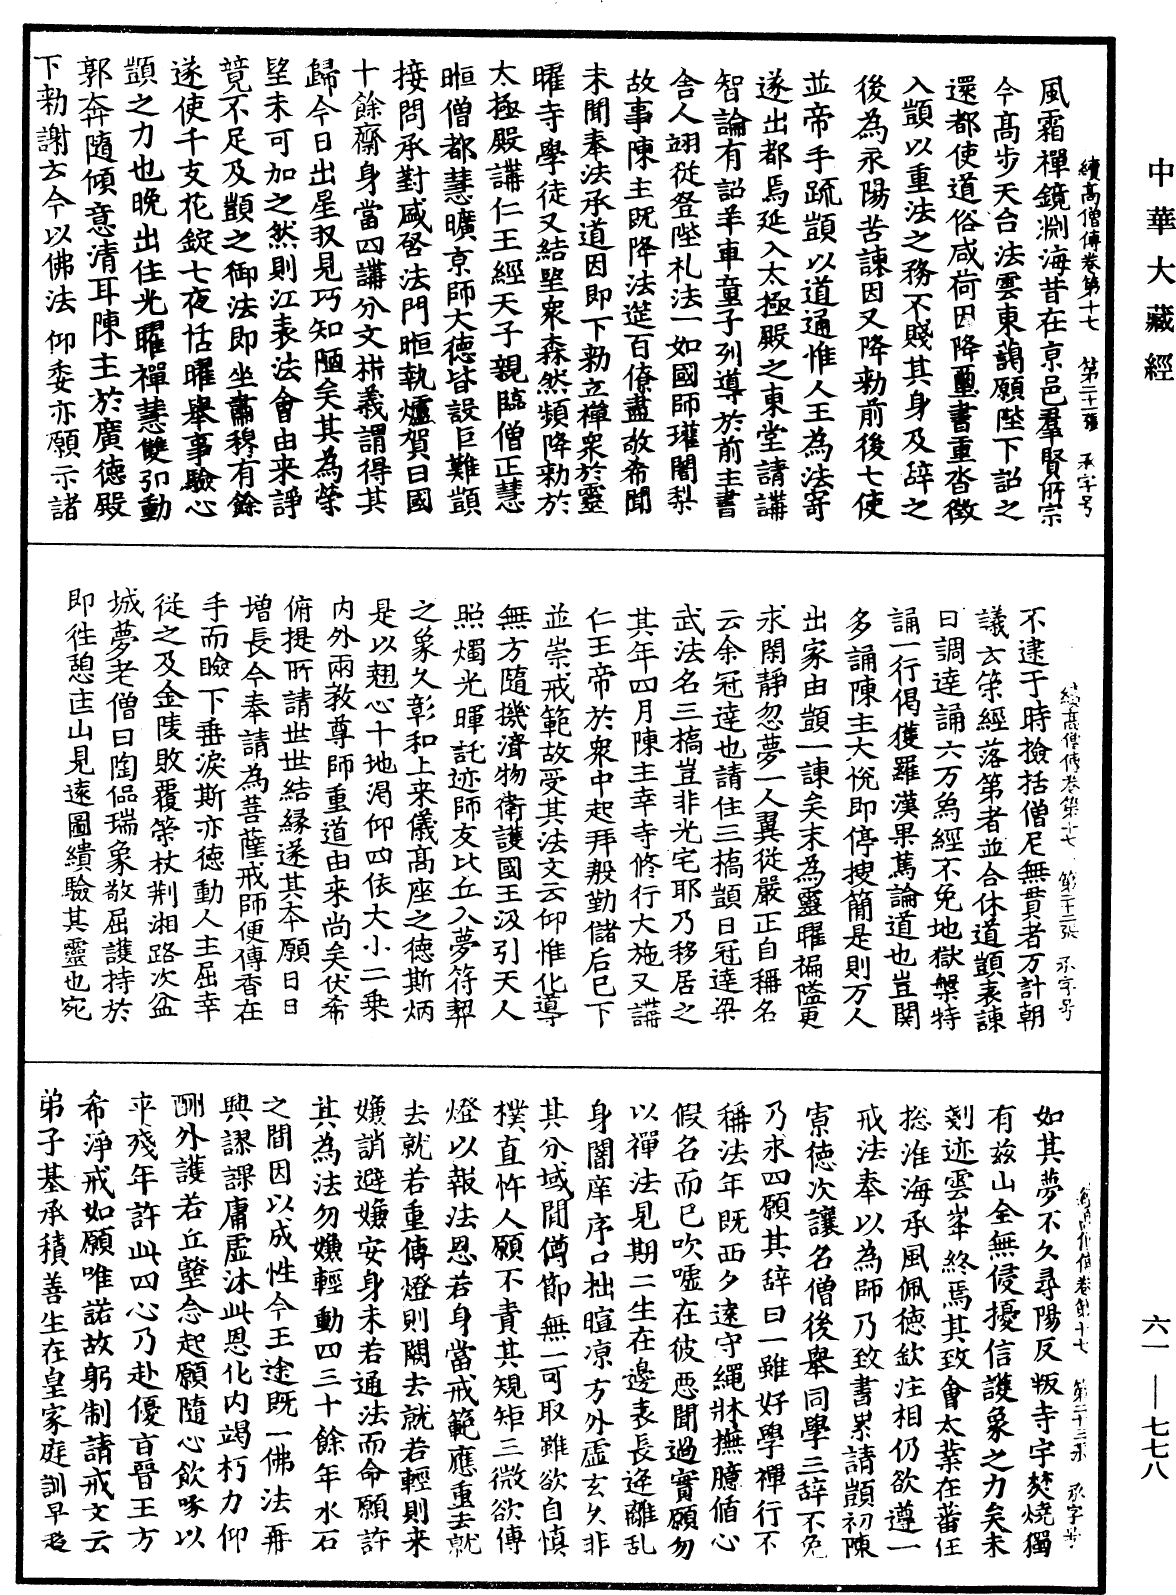 中華大藏經
續高僧傳卷第十七 第二十一張 承字号
風霜禪鏡渊海昔在京邑羣賢所宗
今髙步天台法雲東藹願陛下詔之
還都使道俗咸荷因降璽書重沓徵
入顗以重法之務不賤其身及辞之
後為永陽苦諫因又降勑前後七使
並帝手䟽顗以道通惟人王為法寄
遂出都焉延入太極殿之東堂請講
智論有詔羊車童子列導於前主書
舍人翊從登陛礼法一如國師璀闍梨
故事陳主既降法筵百僚盡敬希聞
未聞奉法承道因即下勑立禪衆於靈
曜寺學徒又結望衆森然頻降勑於
太極殿講仁王經天子親臨僧正慧
暅僧都慧曠京師大徳皆設巨難顗
接問承對咸啓法門暅執爐賀曰國
十餘齋身當四講分文析義謂得其
歸今日出星収見巧知陋矣其為榮
望未可加之然則江表法會由来諍
競不足及顗之御法即坐肅穆有餘
遂使千支花錠七夜恬曜舉事驗心
顗之力也晩出住光曜禪慧雙弘動
郭奔隨傾意清耳陳主於廣徳殿
下勑謝云今以佛法仰委亦願示諸
續髙僧傳卷第十七 第二十二張 承字号
不逮于時撿括僧尼無貫者万計朝
議云䇿經落第者並合休道顗表諫
曰調逹誦六万㑴經不免地獄槃特
誦一行偈獲羅漢果篤論道也豈関
多誦陳主大悅即停搜簡是則万人
出家由顗一諫矣末為靈曜褊隘更
求閑靜忽夢一人翼從嚴正自稱名
云余冠逹也請住三橋顗曰冠逹梁
武法名三橋豈非光宅耶乃移居之
其年四月陳主幸寺修行大施又講
仁王帝於衆中起拜殷勤儲后已下
並崇戒範故受其法文云仰惟化導
無方隨機濟物衛護國王汲引天人
照燭光暉託迹師友比丘入夢符契
之象久彰和上来儀髙座之徳斯炳
是以翹心十地渴仰四依大小二乗
内外兩教尊師重道由来尚矣伏希
俯提所請世世結縁遂其本願日日
増長今奉請為菩薩戒師便傳香在
手而瞼下垂淚斯亦徳動人主屈幸
從之及金陵敗覆䇿杖荆湘路次盆
城夢老僧曰陶侃瑞象敬屈護持於
即徃憩匡山見逺圖繢驗其靈也宛
續髙僧傳卷第十七 第二十三張 承字号
如其夢不久尋陽反叛寺宇焚燒獨
有兹山全無侵擾信護象之力矣未
剗迹雲峯終焉其致會太業在蕃任
捴淮海承風佩徳欽注相仍欲遵一
戒法奉以為師乃致書累請顗初陳
寡徳次讓名僧後舉同學三辞不免
乃求四願其辞曰一雖好學禪行不
稱法年既西夕逺守繩牀撫臆循心
假名而已吹噓在彼惡聞過實願勿
以禪法見期二生在邊表長逢離乱
身闇庠序口拙暄涼方外虛玄久非
其分域間撙節無一可取雖欲自慎
樸直忤人願不責其規矩三微欲傳
燈以報法恩若身當戒範應重去就
去就若重傳燈則闕去就若輕則来
嫌誚避嫌安身未若通法而命願許
其為法勿嫌輕動四三十餘年水石
之間因以成性今王途既一佛法再
興謬課庸虛沐此恩化内竭朽力仰
酬外護若丘壑念起願隨心飲啄以
卒殘年許此四心乃赴優旨晉王方
希淨戒如願唯諾故躬制請戒文云
弟子基承積善生在皇家庭訓早趨
六一—七七八